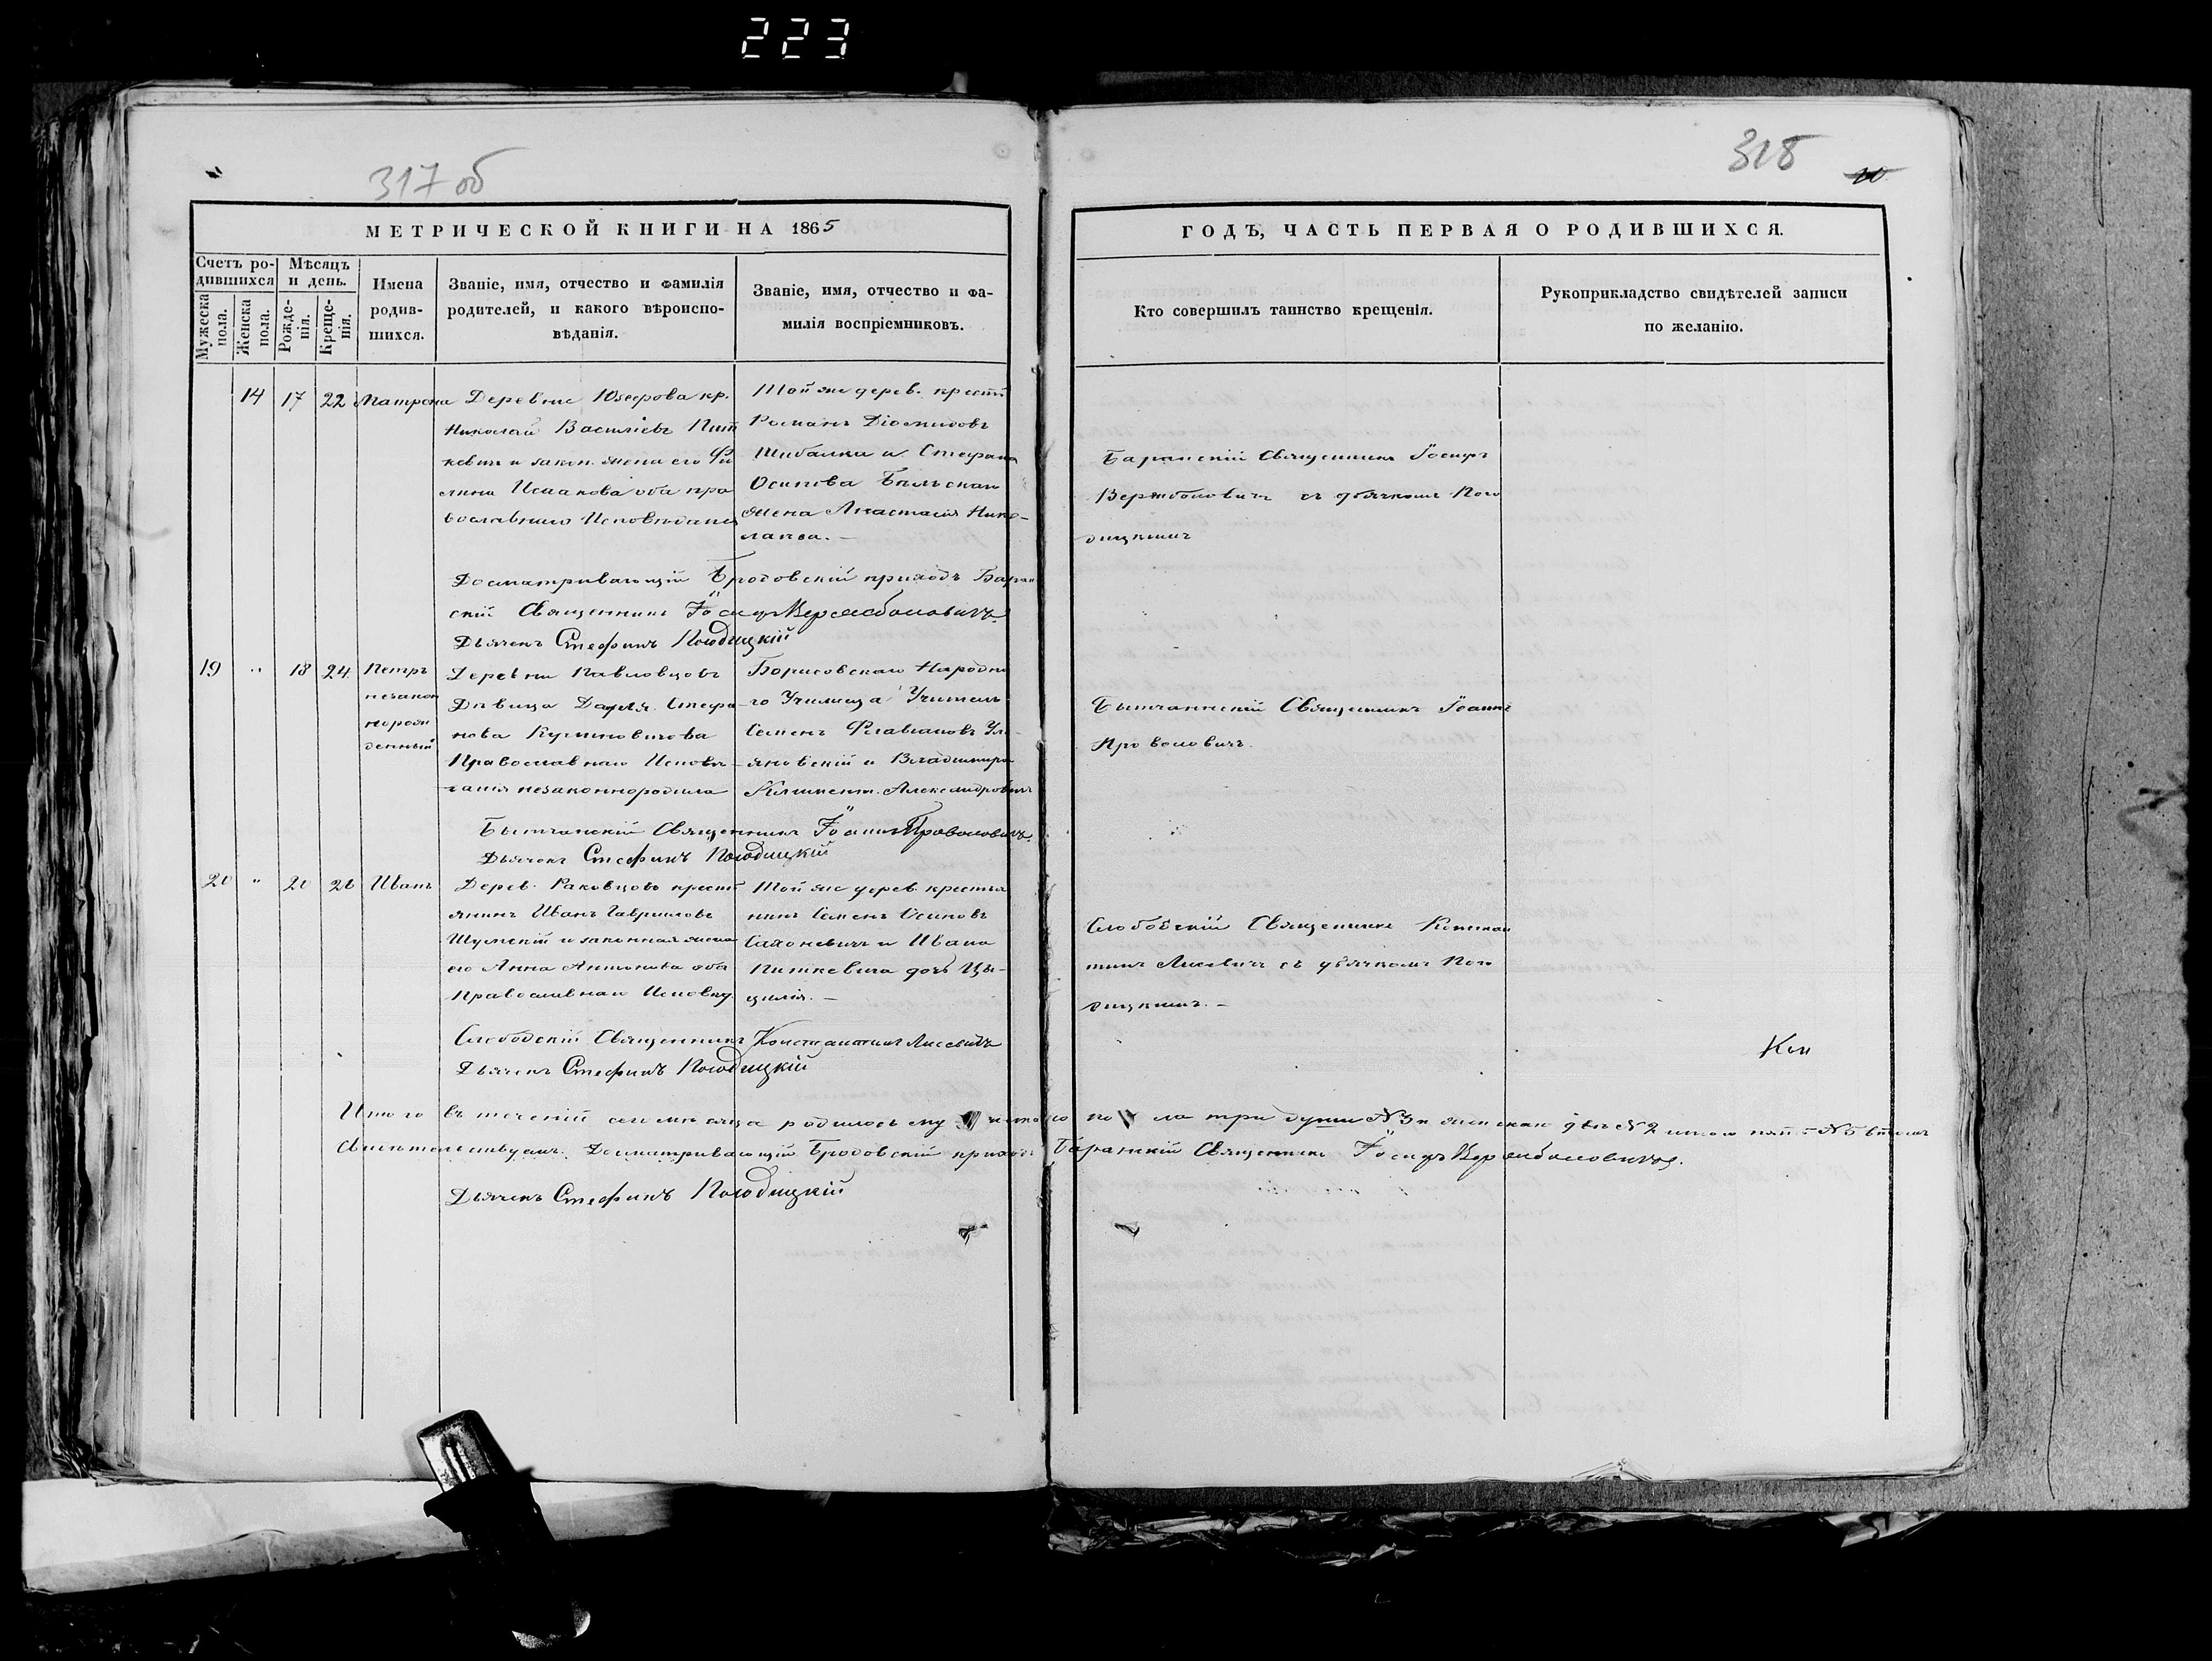 223
317 об
318
20
МЕТРИЧЕСКОЙ КНИГИ НА 1865
ГОДЪ, ЧАСТЬ ПЕРВАЯ О РОДИВШИХСЯ.
Счетъ ро-
дившихся
Мужеска
пола.
Женска
пола.
Мѣсяцъ
и день.
Рожде-
нія.
Креще-
нія.
Имена
родив-
шихся.
Званіе, имя, отчество и фамилія
родителей, и какого вѣроиспо-
вѣданія.
Званіе, имя, отчество и фа-
милія воспріемниковъ.
Кто совершилъ таинство крещенія.
Рукоприкладство свидѣтелей записи
по желанію.
14 17 22 Матрона
Деревни Юзефова кр.
Николай Васильевъ Пит
кевичъ и закон. жена его
Исаакова оба пра
вославнаго Исповѣданія
Той же дерев. крест
Романъ Діомидовъ
Шибалка и Стефана
Осипова
жена Анастасія Нико-
лаева.
Баранскій Священникъ Іосифъ
Вержболовичъ съ дьячкомъ Пого
дицкимъ
Досматривающій Бродовскій приходъ Баран
скій Священникъ Іосифъ Вержболовичъ
Дьячекъ Стефанъ Погодицкій
19 " 18 24 Петръ
незакон
норож
денный
Деревни Павловцовъ
Дѣвица Дарья Стефа-
нова
Православнаго Исповѣ-
данія незаконнородила
Борисовскаго Народна
го Училища Учитель
Семенъ Флавіановъ Уль
яновскій и Владиміра
Александровичъ
Бытчанскій Священникъ Іоаннъ
Проволовичъ.
Бытчанскій Священникъ Іоаннъ Проволовичъ
Дьячекъ Стефанъ Погодицкій
20 " 20 26 Иванъ
Дерев. Раковцовъ крест
янинъ Иванъ Гавриловъ
Шумскій и законная жена
его Анна Антонова оба
Православнаго Исповѣд.
Той же дерев. крестья
нинъ Семенъ Осиповъ
Сахоневичъ и Ивана
Питкевича дочь Цы-
цилія.
Слободскій Священникъ Констан
тинъ Лисевичъ съ дьячкомъ Пого
дицкимъ.
Слободскій Священникъ Константинъ Лисевичъ
Дьячекъ Стефанъ Погодицкій
Кон
Итого въ теченіи сего мѣсяца родилось му по ла три души №3 и женска двѣ №2 итого пять №5 въ томъ
Свидѣтельствуемъ. Досматривающій Бродовскій приходъ Баранскій Священникъ Іосифъ Вержболовичъ.
Дьячекъ Стефанъ Погодицкій